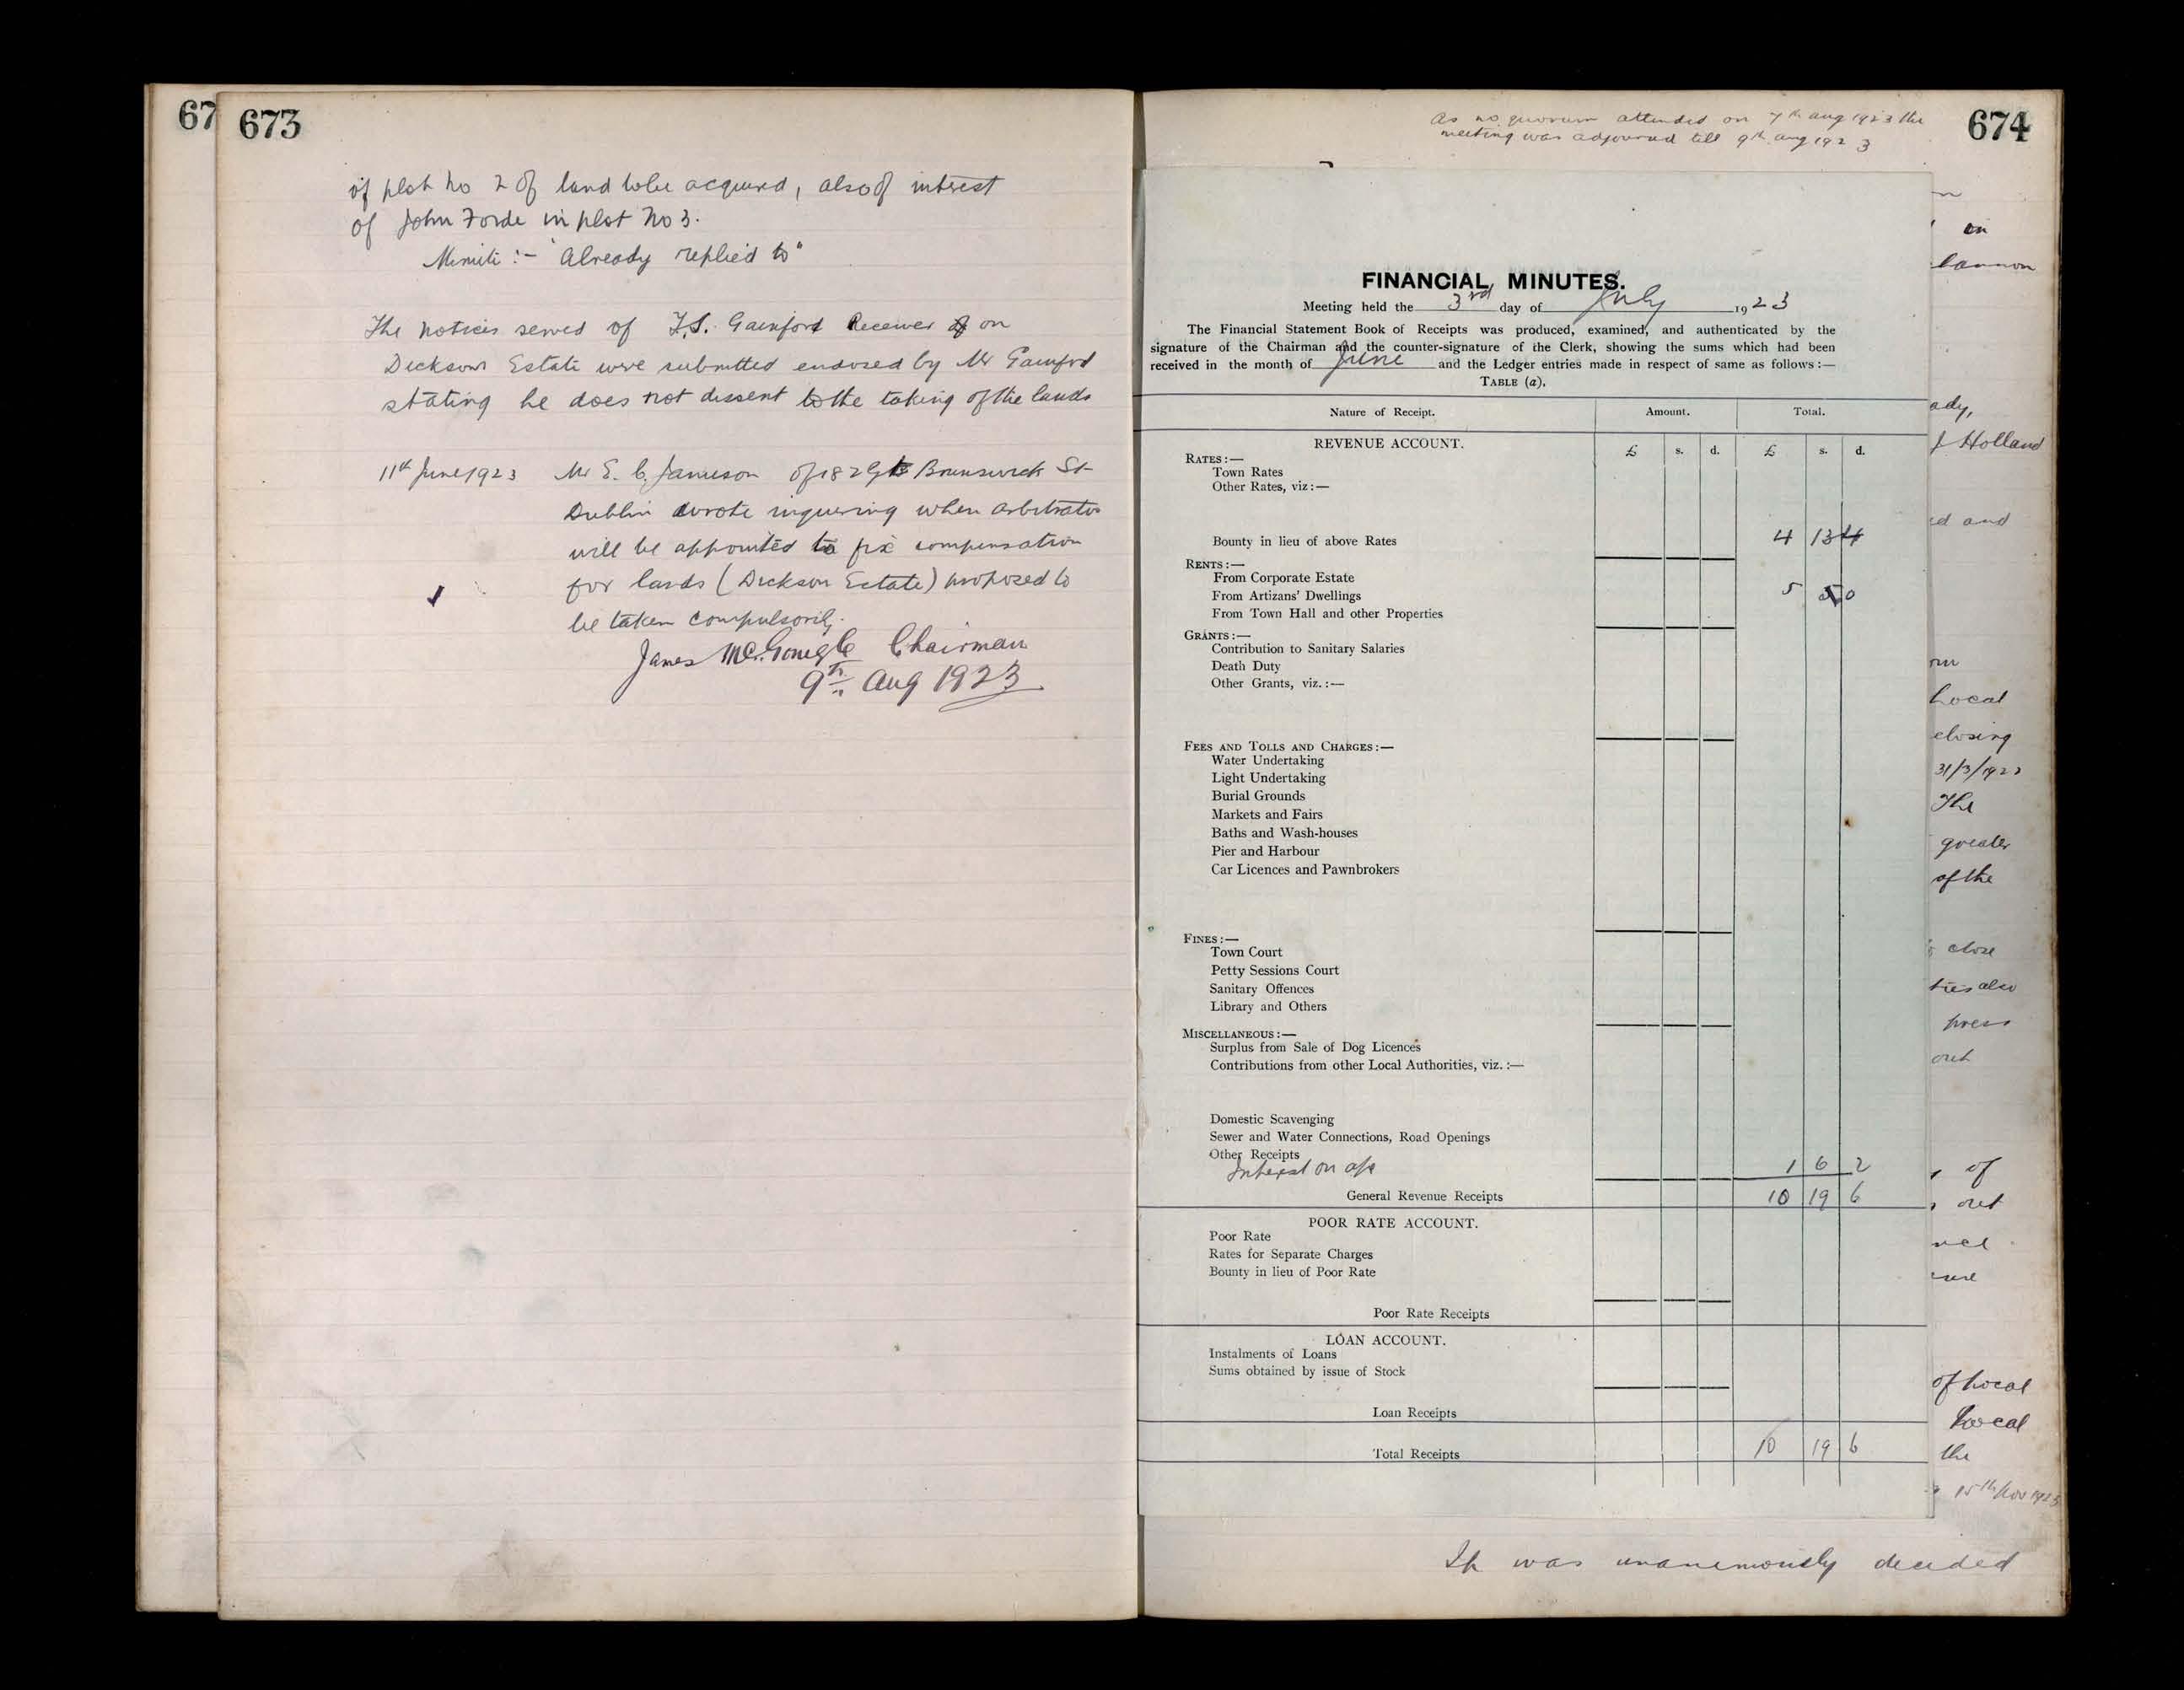 67
673
of plot No 2 of land to be acquired, also of interest
of John Forde in plot No 3.
Minute :- "Already replied to"
The notices served of T.S. Gainford Receiver on
Dickson Estate were submitted endorsed by Mr Gainford
stating he does not dissent to the taking of the lands
11th June 1923 Mr E. C. Jamieson of 182 Gt Brunswick St
Dublin wrote inquering when arbitrator
will be appointed to fix compensation
for lands (Dickson Estate) proposed to
be taken compulsorily.
James McGonigle Chairman
9th Aug 1923
As no quorum attended on 7th aug 1923 the
meeting was adjourned till 9th aug 1923
674
FINANCIAL MINUTES.
Meeting held the 3rd day of July 1923
The Financial Statement Book of Receipts was produced, examined, and authenticated by the
signature of the Chairman and the counter-signature of the Clerk, showing the sums which had been
received in the month of June and the Ledger entries made in respect of same as follows :—
TABLE (a).
Nature of Receipt. Amount. Total.
REVENUE ACCOUNT.
£ s. d. £ s. d.
RATES :—
Town Rates
Other Rates, viz :—
Bounty in lieu of above Rates 4 13 4
RENTS :—
From Corporate Estate
From Artizans' Dwellings 5 0
From Town Hall and other Properties
GRANTS :—
Contribution to Sanitary Salaries
Death Duty
Other Grants, viz. :—
FEES AND TOLLS AND CHARGES :—
Water Undertaking
Light Undertaking
Burial Grounds
Markets and Fairs
Baths and Wash-houses
Pier and Harbour
Car Licences and Pawnbrokers
FINES :—
Town Court
Petty Sessions Court
Sanitary Offences
Library and Others
MISCELLANEOUS :—
Surplus from Sale of Dog Licences
Contributions from other Local Authorities, viz. :—
Domestic Scavenging
Sewer and Water Connections, Road Openings
Other Receipts
Interest on a/c 1 6 2
General Revenue Receipts 10 19 6
POOR RATE ACCOUNT.
Poor Rate
Rates for Separate Charges
Bounty in lieu of Poor Rate
Poor Rate Receipts
LOAN ACCOUNT.
Instalments of Loans
Sums obtained by issue of Stock
Loan Receipts
Total Receipts 10 19 6
in
ady,
J Holland
and
Local
closing
The
greater
of the
close
also
press
out
of
out
of Local
Local
the
15th Nov 1923
It was unanimously decided